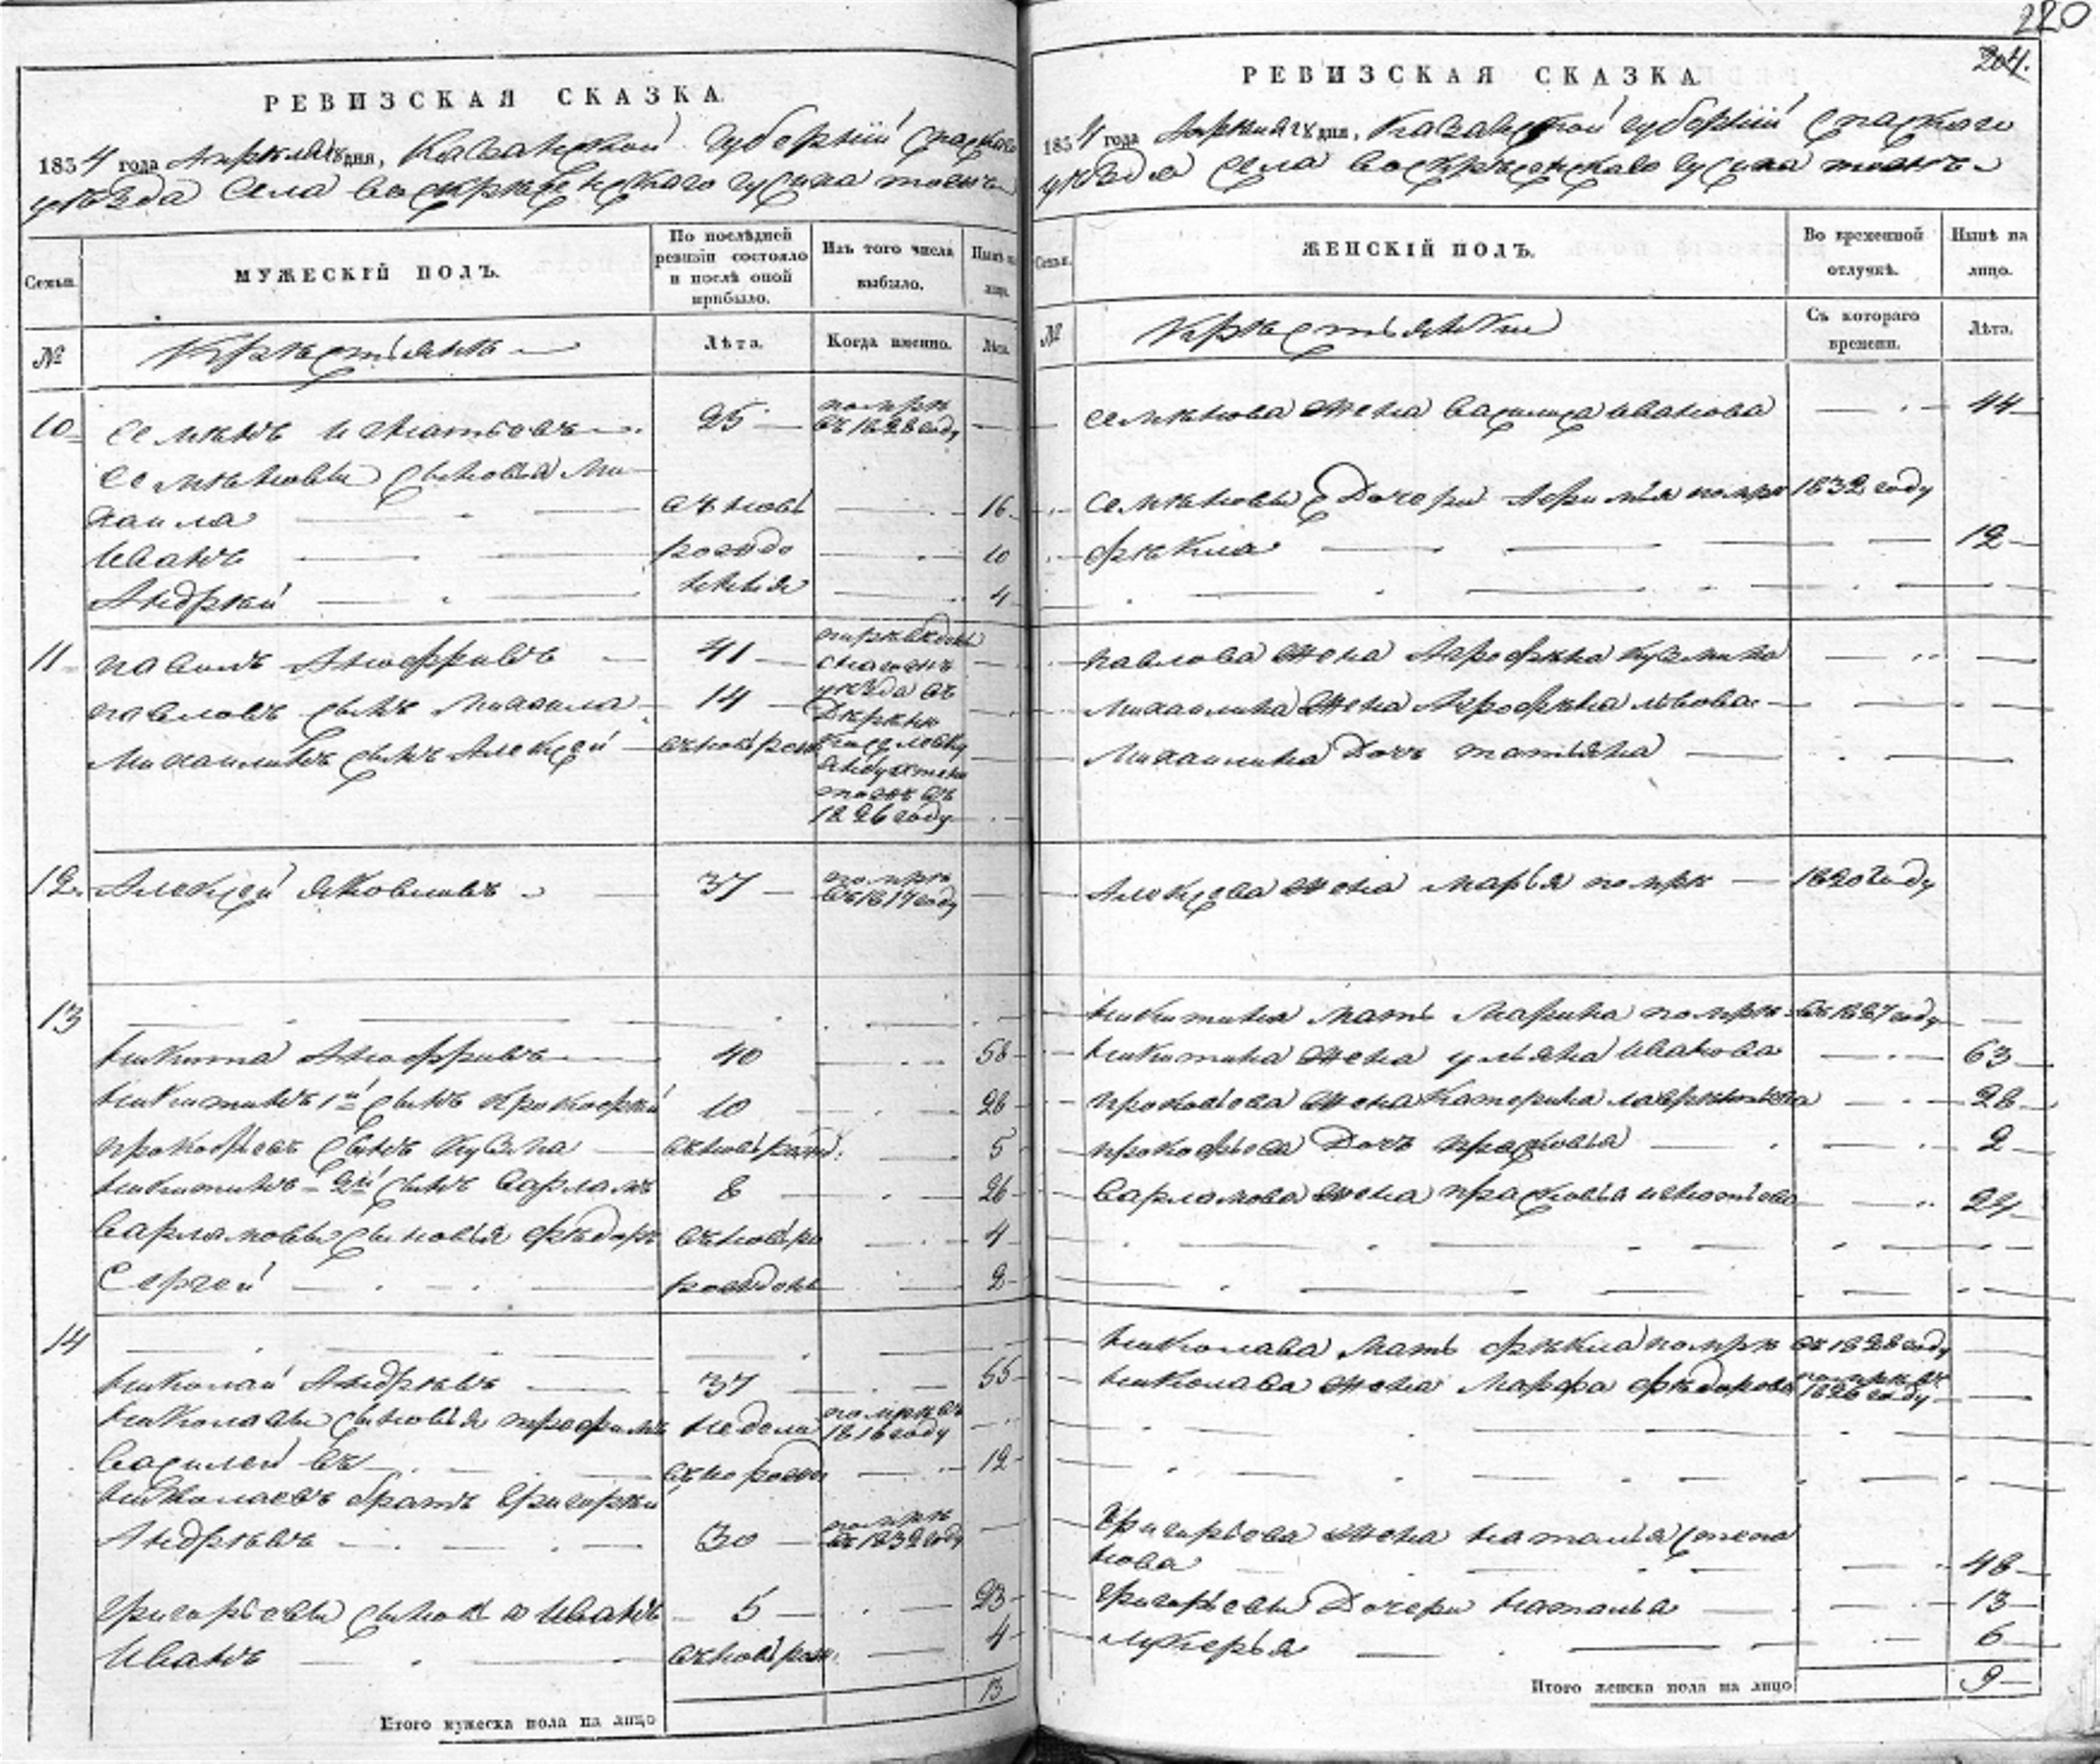 РЕВИЗСКАЯ СКАЗКА
1834 года Апреля дня, Казанской губернии Спаскаго
уезда Села Воскресенскаго Гусиха тожъ
Семьи.
МУЖЕСКІЙ ПОЛЪ.
По послѣдней
ревизіи состояло
и послѣ оной
прибыло.
Изъ того числа
выбыло.
Нынѣ на
лицо.
№
Крестьяне
Лѣта.
Когда именно.
Лѣта.
10 Семенъ Игнатьевъ 25 помре
въ 1828 году
Семеновы сыновья Ми-
хаила вновь 16
Иванъ рожде 10
Андрей нныя 4
11 Павелъ Ануфривъ 41
Павловъ сынъ Михаила 14
Михаилинъ сынъ Алексей вновь рож
переведены
уезда въ
деревню
тожъ въ
1826 году
12. Алексей Яковлевъ 37 помре
въ 1817 году
13
Никита Ануфривъ 40 58
Никитинъ 1й сынъ Прокофей 10 28
Прокофьевъ сынъ Кузма вновь рож: 5
Никитинъ 2й сынъ Варламъ 8 26
Варламовы сыновья Федоръ вновь ро 4
Сергей рожден 2
14
Николай Андреевъ 37 55
Николаевы сыновья Трофимъ недели помре въ
1816 году
Василей 2й вно рожен 12
Николаевъ братъ Григорей
Андреевъ 30 помре
въ 1832 году
Григорьевы сыновья Иванъ 5 23
Иванъ вновь рож: 4
Итого мужеска пола на лицо 13
220
204.
РЕВИЗСКАЯ СКАЗКА
1834 года Апреля дня, Казанской губернии Спаскаго
уезда Села Воскресенскаго Гусиха тожъ
Семьи.
ЖЕНСКІЙ ПОЛЪ.
Во временной
отлучкѣ.
Нынѣ на
лицо.
№
Крестьянки
Съ котораго
времени.
Лѣта.
Семенова жена Василиса Иванова 44
Семеновы дочери Афимья помре 1832 году
Фекла 12
Павлова жена Агрофена Кузмина
Михаилина жена Агрофена Львова
Михаилина дочь Татьяна
Алексева жена Марья помре 1820 году
Никитина мать Марина помре въ 1827 году
Никитина жена Ульяна Иванова 63
Прокофьева жена Катерина Лаврентьева 28
Прокофьева дочь Прасковья 2
Варламова жена Прасковья Игнатьева 24
Николаева мать Фекла помре въ 1828 году
Николаева жена Марфа Федорова помре въ
1826 году
Григорьева жена Наталья Степа
нова 48
Григорьевы дочери Наталья 13
Лукерья 6
Итого женска пола на лицо 9